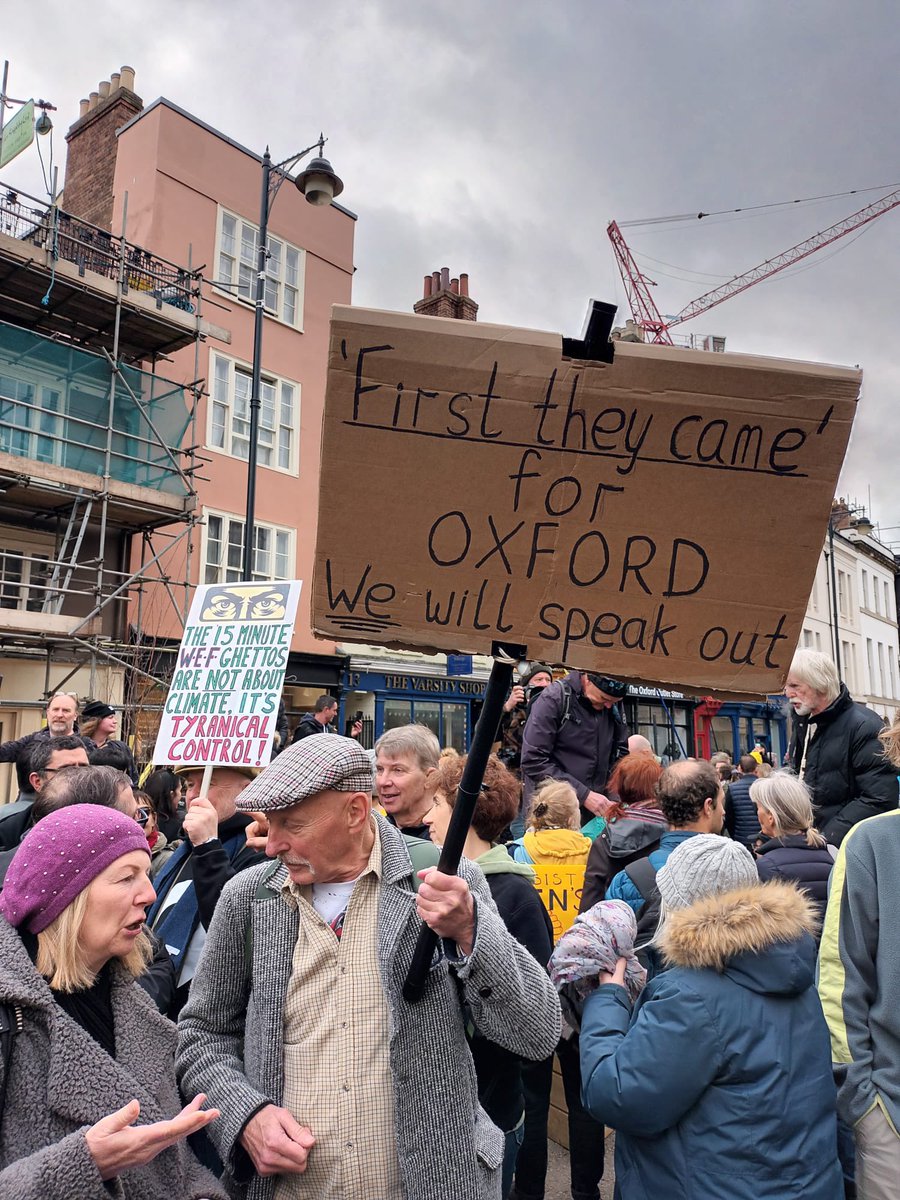 'First they came'
for
OXFORD
We will speak out
THE 15 MINUTE
WEF GHETTOS
ARE NOT ABOUT
CLIMATE, IT'S
TYRANICAL
CONTROL!
13
THE VARSITY SHOP